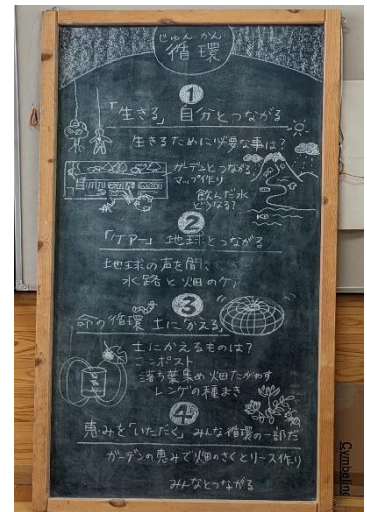 じゅんかん
循環
1
「生きる」自分とつながる
生きるために必要な事は?
ガーデンとつながる
マップ作り
飲んだ水
どうなる?
2
「ケアー」地球とつながる
地球の声を聞く
水路と畑のケア
3
命の循環 土に「かえる」
土にかえるものは?
コンポスト
落ち葉集め 畑たがやす
レンゲの種まき
4
恵みを「いただく」みんな循環の一部だ
ガーデンの恵みで畑のさくとリース作り
みんなとつながる
Cymbeline